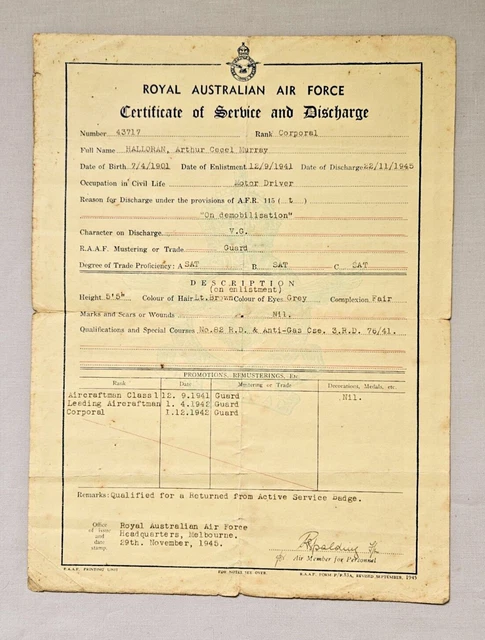 ROYAL AUSTRALIAN AIR FORCE
Certificate of Service and Discharge
Number 43717 Rank Corporal
Full Name HALLORAN, Arthur Cecel Murray
Date of Birth 7/4/1901 Date of Enlistment 12/9/1941 Date of Discharge 22/11/1945
Occupation in Civil Life Motor Driver
Reason for Discharge under the provisions of A.F.R. 115 ( t )
"On demobilisation"
Character on Discharge V.G.
R.A.A.F. Mustering or Trade Guard
Degree of Trade Proficiency: A SAT B SAT C SAT
DESCRIPTION
(on enlistment)
Height 5'5" Colour of Hair Lt.Brown Colour of Eyes Grey Complexion Fair
Marks and Scars or Wounds Nil.
Qualifications and Special Courses No.82 R.D. & Anti-Gas Cse. 3.R.D. 76/41.
PROMOTIONS, REMUSTERINGS, Etc.
Rank Date Mustering or Trade Decorations, Medals, etc.
Aircraftman Class 1 12. 9.1941 Guard Nil.
Leading Aircraftman 1. 4.1942 Guard
Corporal 1.12.1942 Guard
Remarks: Qualified for a Returned from Active Service Badge.
Office of Issue and date stamp Royal Australian Air Force
Headquarters, Melbourne.
29th. November, 1945.
Air Member for Personnel
R.A.A.F. PRINTING UNIT FOR NOTES SEE OVER R.A.A.F. FORM P/P.33A, REVISED SEPTEMBER, 1945